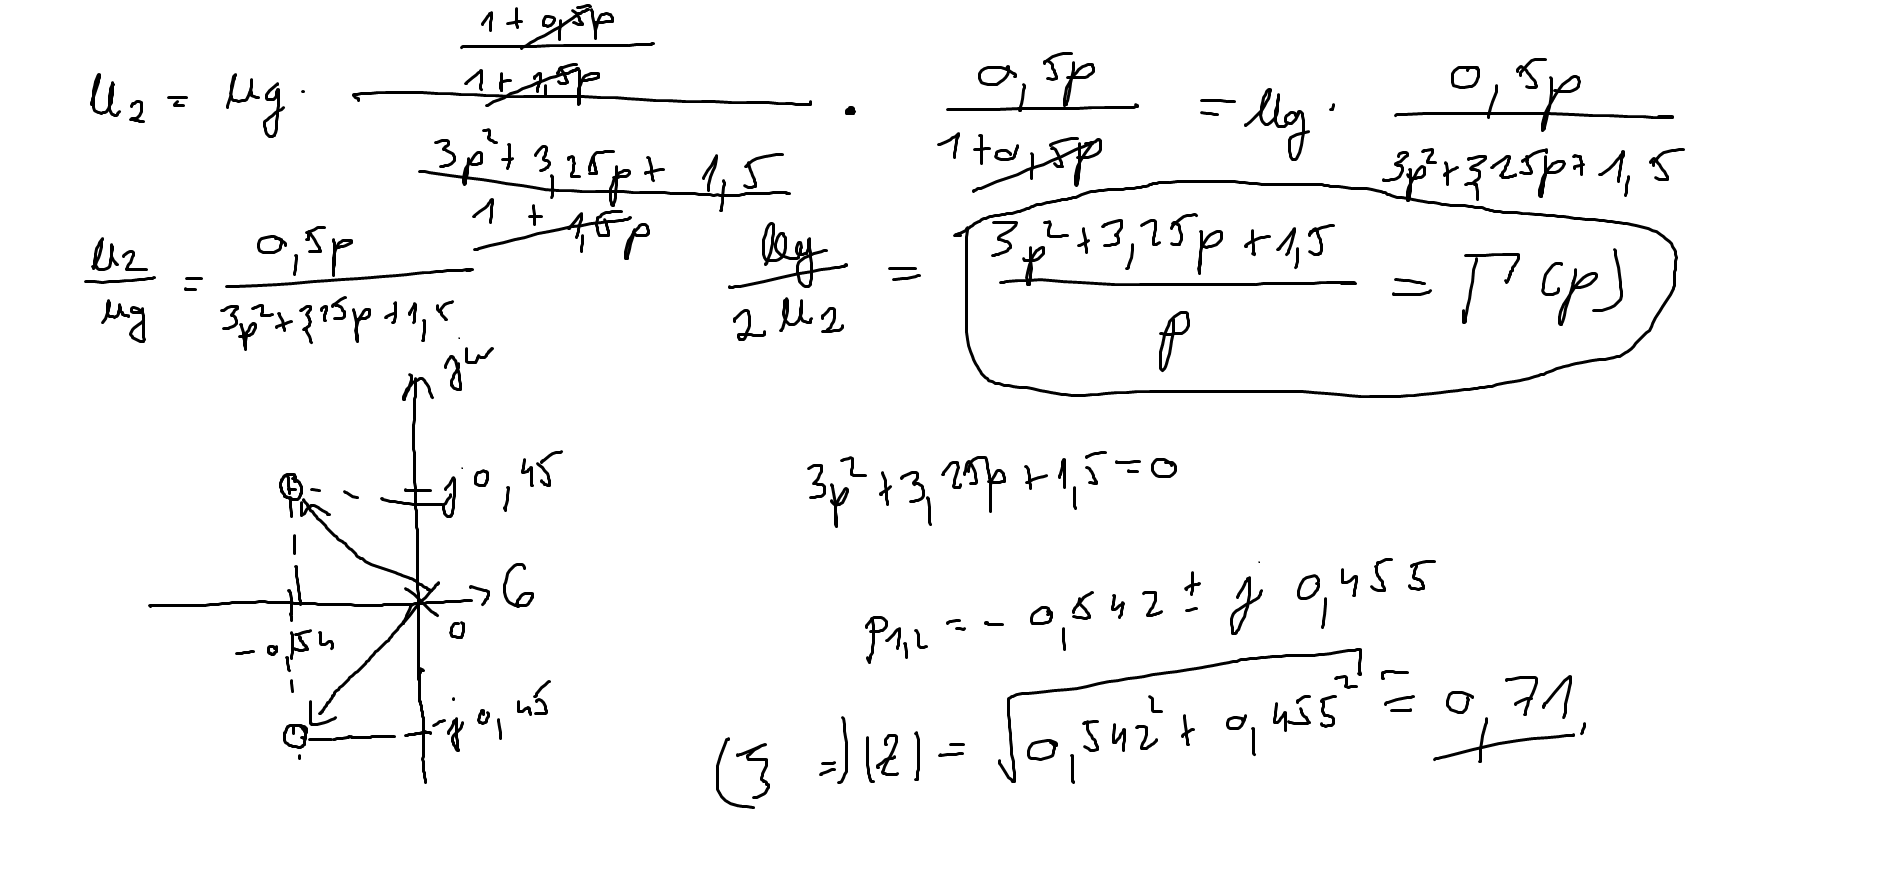 u2 = ug · ((1 + 0,5p)/(1 + 1,5p))/((3p² + 3,25p + 1,5)/(1 + 1,5p)) · 0,5p/(1 + 0,5p) = ug · 0,5p/(3p² + 3,25p + 1,5)
u2/ug = 0,5p/(3p² + 3,25p + 1,5)
ug/2u2 = (3p² + 3,25p + 1,5)/p = Γ(p)
jω
j0,45
3p² + 3,25p + 1,5 = 0
σ
0
-0,54
p1,2 = - 0,542 ± j 0,455
-j0,45
|z| = √(0,542² + 0,455²) = 0,71